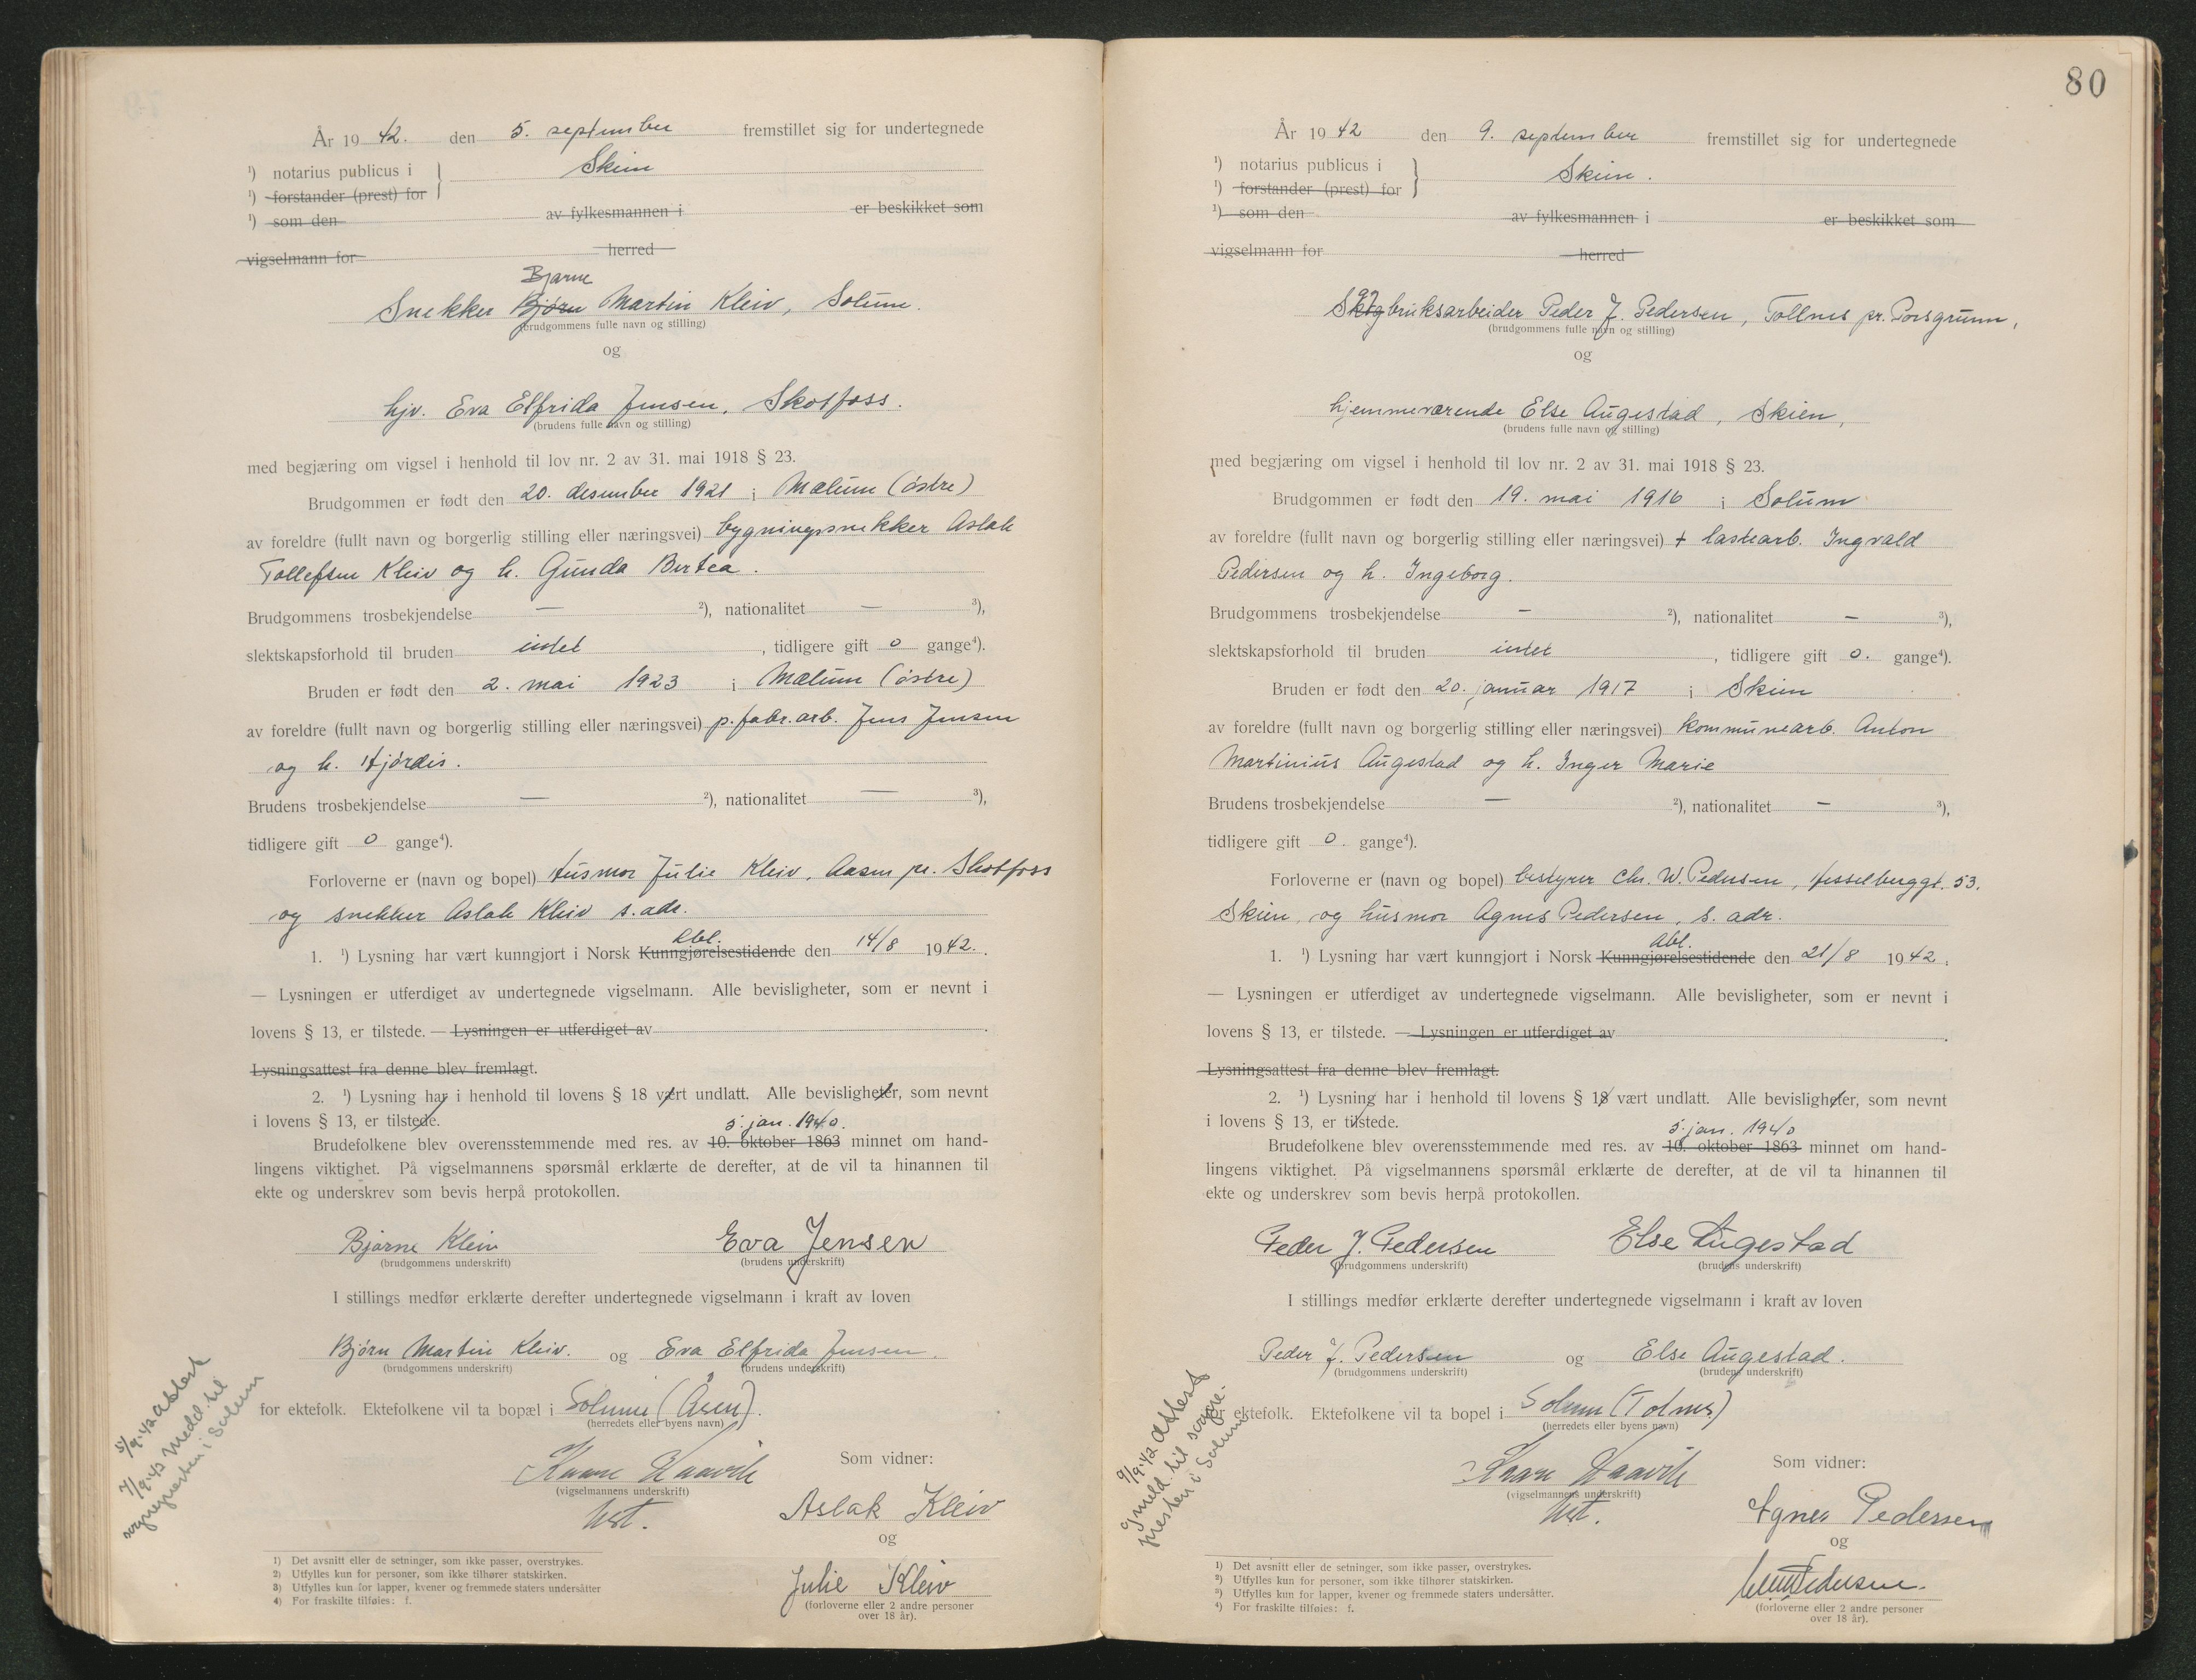 År 19 42. den 5. september fremstillet sig for undertegnede
¹) notarius publicus i } Skien
¹) forstander (prest) for
¹) som den av fylkesmannen i er beskikket som
vigselmann for herred
Bjarne
Snekker Bjørn Martin Kleiv, Solum.
(brudgommens fulle navn og stilling)
og
hjv. Eva Elfrida Jensen, Skotfoss.
(brudens fulle navn og stilling)
med begjæring om vigsel i henhold til lov nr. 2 av 31. mai 1918 § 23.
Brudgommen er født den 20. desember 1921 i Mælum (østre)
av foreldre (fullt navn og borgerlig stilling eller næringsvei) bygningssnekker Aslak
Tollefsen Kleiv og h. Gunda Bertea.
Brudgommens trosbekjendelse — ²), nationalitet — ³),
slektskapsforhold til bruden intet, tidligere gift 0 gange⁴).
Bruden er født den 2. mai 1923 i Mælum (østre)
av foreldre (fullt navn og borgerlig stilling eller næringsvei) p. fabr.arb. Jens Jensen
og h. Hjørdis.
Brudens trosbekjendelse — ²), nationalitet — ³),
tidligere gift 0 gange⁴).
Forloverne er (navn og bopel) Husmor Julie Kleiv, Aasen pr. Skotfoss
og snekker Aslak Kleiv s. adr.
1. ¹) Lysning har vært kunngjort i Norsk Kunngjørelsestidende den 14/8 1942.
— Lysningen er utferdiget av undertegnede vigselmann. Alle bevisligheter, som er nevnt i
lovens § 13, er tilstede. — Lysningen er utferdiget av .
Lysningsattest fra denne blev fremlagt.
2. ¹) Lysning har i henhold til lovens § 18 vært undlatt. Alle bevisligheter, som nevnt
i lovens § 13, er tilstede.
5. jan. 1940.
Brudefolkene blev overensstemmende med res. av 10. oktober 1863 minnet om hand-
lingens viktighet. På vigselmannens spørsmål erklærte de derefter, at de vil ta hinannen til
ekte og underskrev som bevis herpå protokollen.
Bjarne Kleiv Eva Jensen
(brudgommens underskrift) (brudens underskrift)
I stillings medfør erklærte derefter undertegnede vigselmann i kraft av loven
Bjørn Martin Kleiv. og Eva Elfrida Jensen.
(brudgommens underskrift) (brudens underskrift)
for ektefolk. Ektefolkene vil ta bopæl i Solum (Åsen).
(herredets eller byens navn)
5/9-42 Attest
7/9-42 Medd. til
sognepresten i Solum
Som vidner:
(vigselmannens underskrift)
Aslak Kleiv
og
Julie Kleiv
(forloverne eller 2 andre personer
over 18 år).
1) Det avsnitt eller de setninger, som ikke passer, overstrykes.
2) Utfylles kun for personer, som ikke tilhører statskirken.
3) Utfylles kun for lapper, kvener og fremmede staters undersåtter
4) For fraskilte tilføies: f.
80
År 19 42 den 9. september fremstillet sig for undertegnede
¹) notarius publicus i } Skien.
¹) forstander (prest) for
¹) som den av fylkesmannen i er beskikket som
vigselmann for herred
Skogbruksarbeider Peder J. Pedersen, Tollnes pr. Porsgrunn,
(brudgommens fulle navn og stilling)
og
hjemmeværende Else Augestad, Skien,
(brudens fulle navn og stilling)
med begjæring om vigsel i henhold til lov nr. 2 av 31. mai 1918 § 23.
Brudgommen er født den 19. mai 1916 i Solum
av foreldre (fullt navn og borgerlig stilling eller næringsvei) + lastearb. Ingvald
Pedersen og h. Ingeborg.
Brudgommens trosbekjendelse — ²), nationalitet — ³),
slektskapsforhold til bruden intet, tidligere gift 0. gange⁴).
Bruden er født den 20. januar 1917 i Skien
av foreldre (fullt navn og borgerlig stilling eller næringsvei) kommunearb. Anton
Martinius Augestad og h. Inger Marie
Brudens trosbekjendelse — ²), nationalitet — ³),
tidligere gift 0. gange⁴).
Forloverne er (navn og bopel) bestyrer Chr. W. Pedersen, Hesselberggt. 53.
Skien, og husmor Agnes Pedersen, s. adr.
1. ¹) Lysning har vært kunngjort i Norsk Kunngjørelsestidende den 21/8 1942.
— Lysningen er utferdiget av undertegnede vigselmann. Alle bevisligheter, som er nevnt i
lovens § 13, er tilstede. — Lysningen er utferdiget av .
Lysningsattest fra denne blev fremlagt.
2. ¹) Lysning har i henhold til lovens § 18 vært undlatt. Alle bevisligheter, som nevnt
i lovens § 13, er tilstede.
5. jan. 1940
Brudefolkene blev overensstemmende med res. av 10. oktober 1863 minnet om hand-
lingens viktighet. På vigselmannens spørsmål erklærte de derefter, at de vil ta hinannen til
ekte og underskrev som bevis herpå protokollen.
Peder J. Pedersen Else Augestad
(brudgommens underskrift) (brudens underskrift)
I stillings medfør erklærte derefter undertegnede vigselmann i kraft av loven
Peder J. Pedersen og Else Augestad.
(brudgommens underskrift) (brudens underskrift)
for ektefolk. Ektefolkene vil ta bopel i Solum (Tolnes)
(herredets eller byens navn)
9/9-42 Attest
meld. til sogne-
presten i Solum
Som vidner:
(vigselmannens underskrift)
Agnes Pedersen
og
Pedersen.
(forloverne eller 2 andre personer
over 18 år).
¹) Det avsnitt eller de setninger, som ikke passer, overstrykes.
²) Utfylles kun for personer, som ikke tilhører statskirken.
³) Utfylles kun for lapper, kvener og fremmede staters undersåtter.
⁴) For fraskilte tilføies: f.